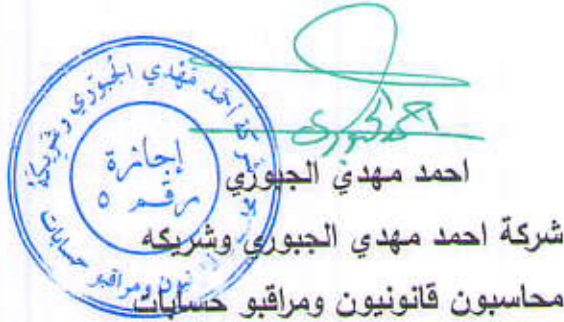 شركة أحمد مهدي الجبوري وشريكه
محاسبون قانونيون ومراقبو حسابات
إجازة
رقم ٥
احمد الجبوري
احمد مهدي الجبوري
شركة احمد مهدي الجبوري وشريكه
محاسبون قانونيون ومراقبو حسابات